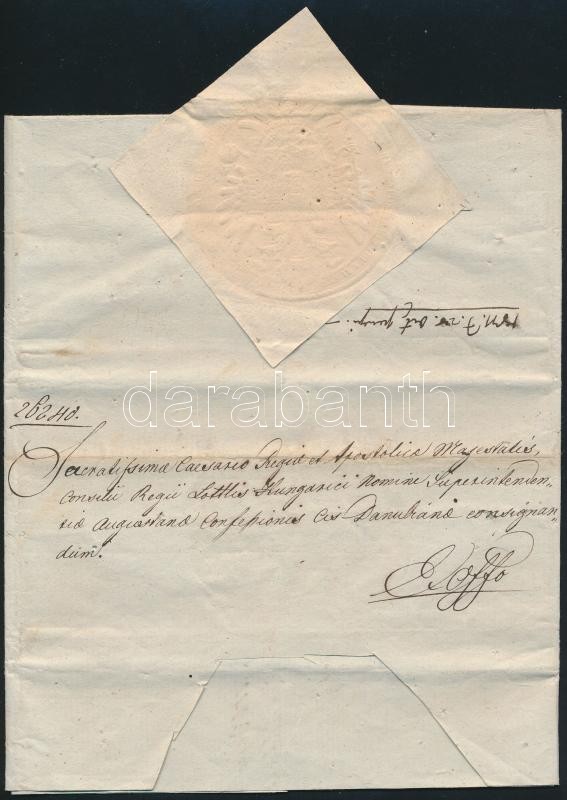 26240.
darabanth
Sacratissimae Caesareo Regiae et Apostolicae Majestatis,
Consilii Regii Lottlis Hungarici Nomine Superintenden-
tiae Augustanae Confessionis Cis Danubianae consignan-
dum.
Ex Offo